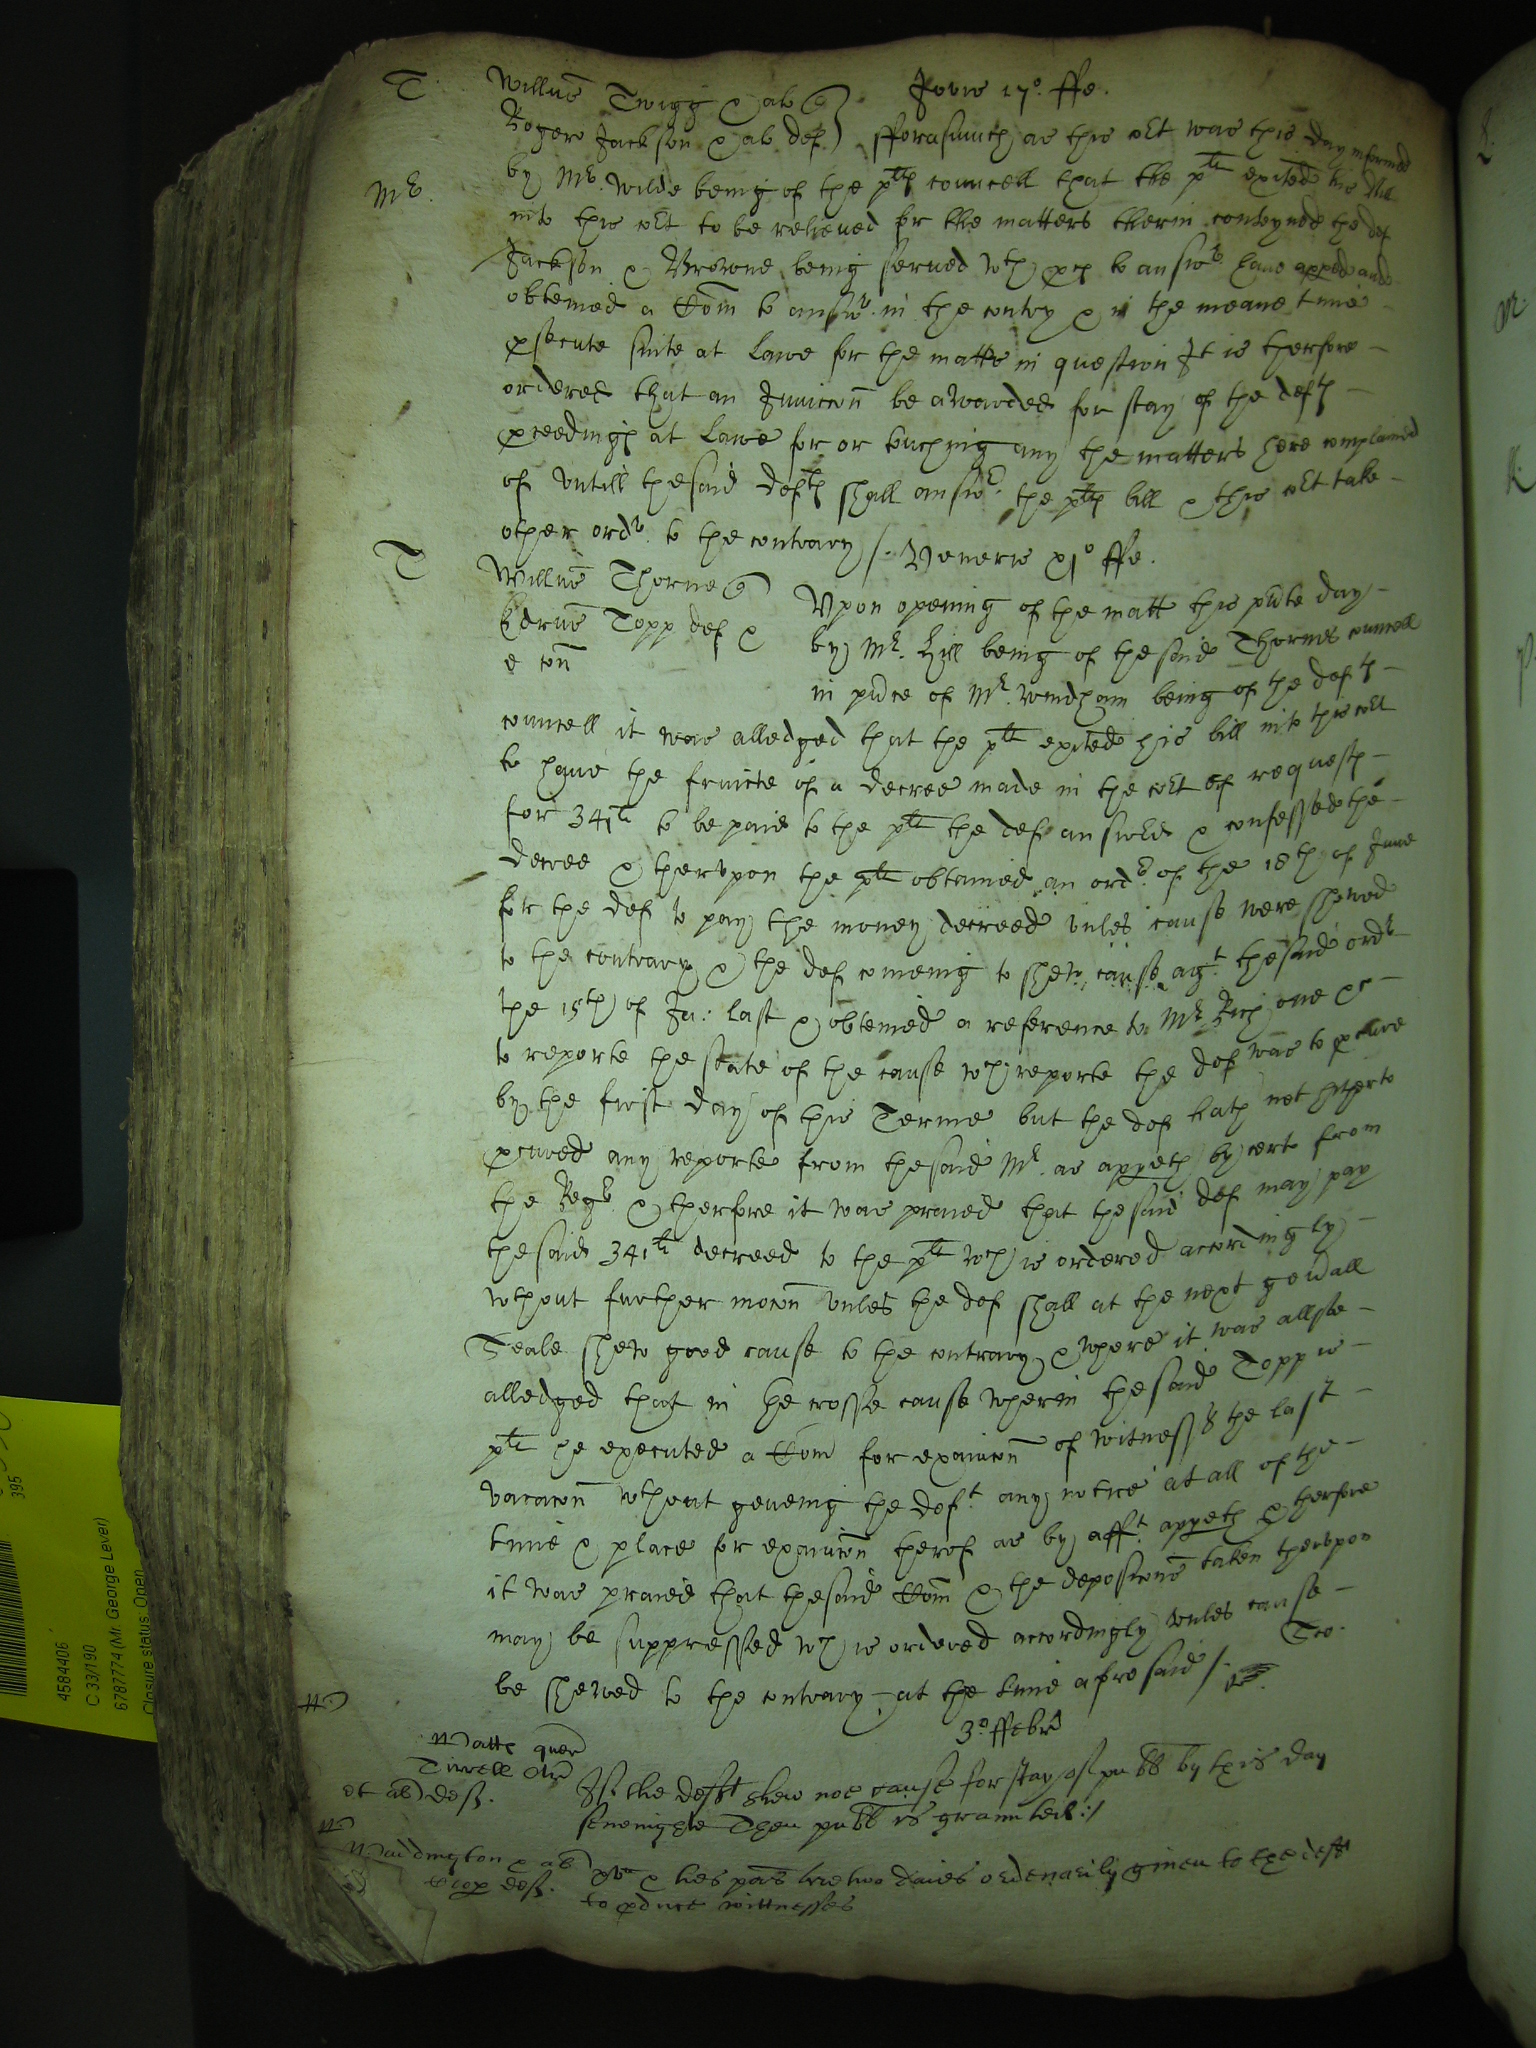 T Willus Twigg & al q Jovis 17o. ffe.
Rogerus Jackson & al def fforasmuch as this cort was this day informed
Mr. by Mr. Wilde being of the plts councell that the plt exited his bill
into this cort to be releived for the matters therin conteyned the def
Jackson & Browne being served wth pces to answr have apped and
obteined a Com to answr. in the contry & in the meane time
psecute suite at lawe for the matter in question It is therfore
ordered that an Iniunccon be awarded for stay of the defts
pceedings at lawe for or touching any the matters here complained
of vntill the said defts shall answr. the plts bill & this cort take
other ordr. to the contrary /.
T Willus Thorne q Veneris xio ffe.
Edrus Topp def & Vpon opening of the matt this pnte day
e con by Mr. Hill being of the said Thornes councell
in pnce of Mr. Windham being of the defts
councell it was alledged that the plt exited his bill into this cort
to haue the fruicte of a decree made in the cort of requests
for 341li to be paid to the plt the def answred & confessed the
decree & thervpon the plt obtained an ordr. of the 18th of June
for the def to pay the money decreed vnles cause were shewed
to the contrary & the def comeing to shew cause agt. the said ordr
the 15th of Ja: last & obteined a reference to Mr Rich one &c
to reporte the state of the cause wch reporte the def was to pcure
by the first day of this Terme but the def hath not hitherto
pcured any reporte from the said Mr. as appeth by cert from
the Regr. & therfore it was praied that the said def may pay
the said 341li decreed to the plt wch is ordered accordingly
wthout further mocon vnles the def shall at the next genall
Seale shew good cause to the contrary & where it was allsoe
alledged that in the crosse cause wherein the said Topp is
plt he executed a Com for exaiacon of witnesses the last
vacacon wthout geueing the deft. any notice at all of the
time & place for exaiacon therof as by afft. appeth & therfore
it was praied that the said Com & the deposicons taken thervpon
may be suppressed wch is ordered accordingly vnles cause
be shewed to the contrary at the time aforesaid /.
3o ffebr
Watts quer
Tirrell
et al def. If the deft shew not cause for stay of publ by this day
senenighte Then publ is graunted :/
Waddington & al
def. & his pars two daies ordenarily giuen to the deft
to pduce wittnesses
395
4584406
C 33/190
6787774 (Mr. George Lever)
Closure status: Open